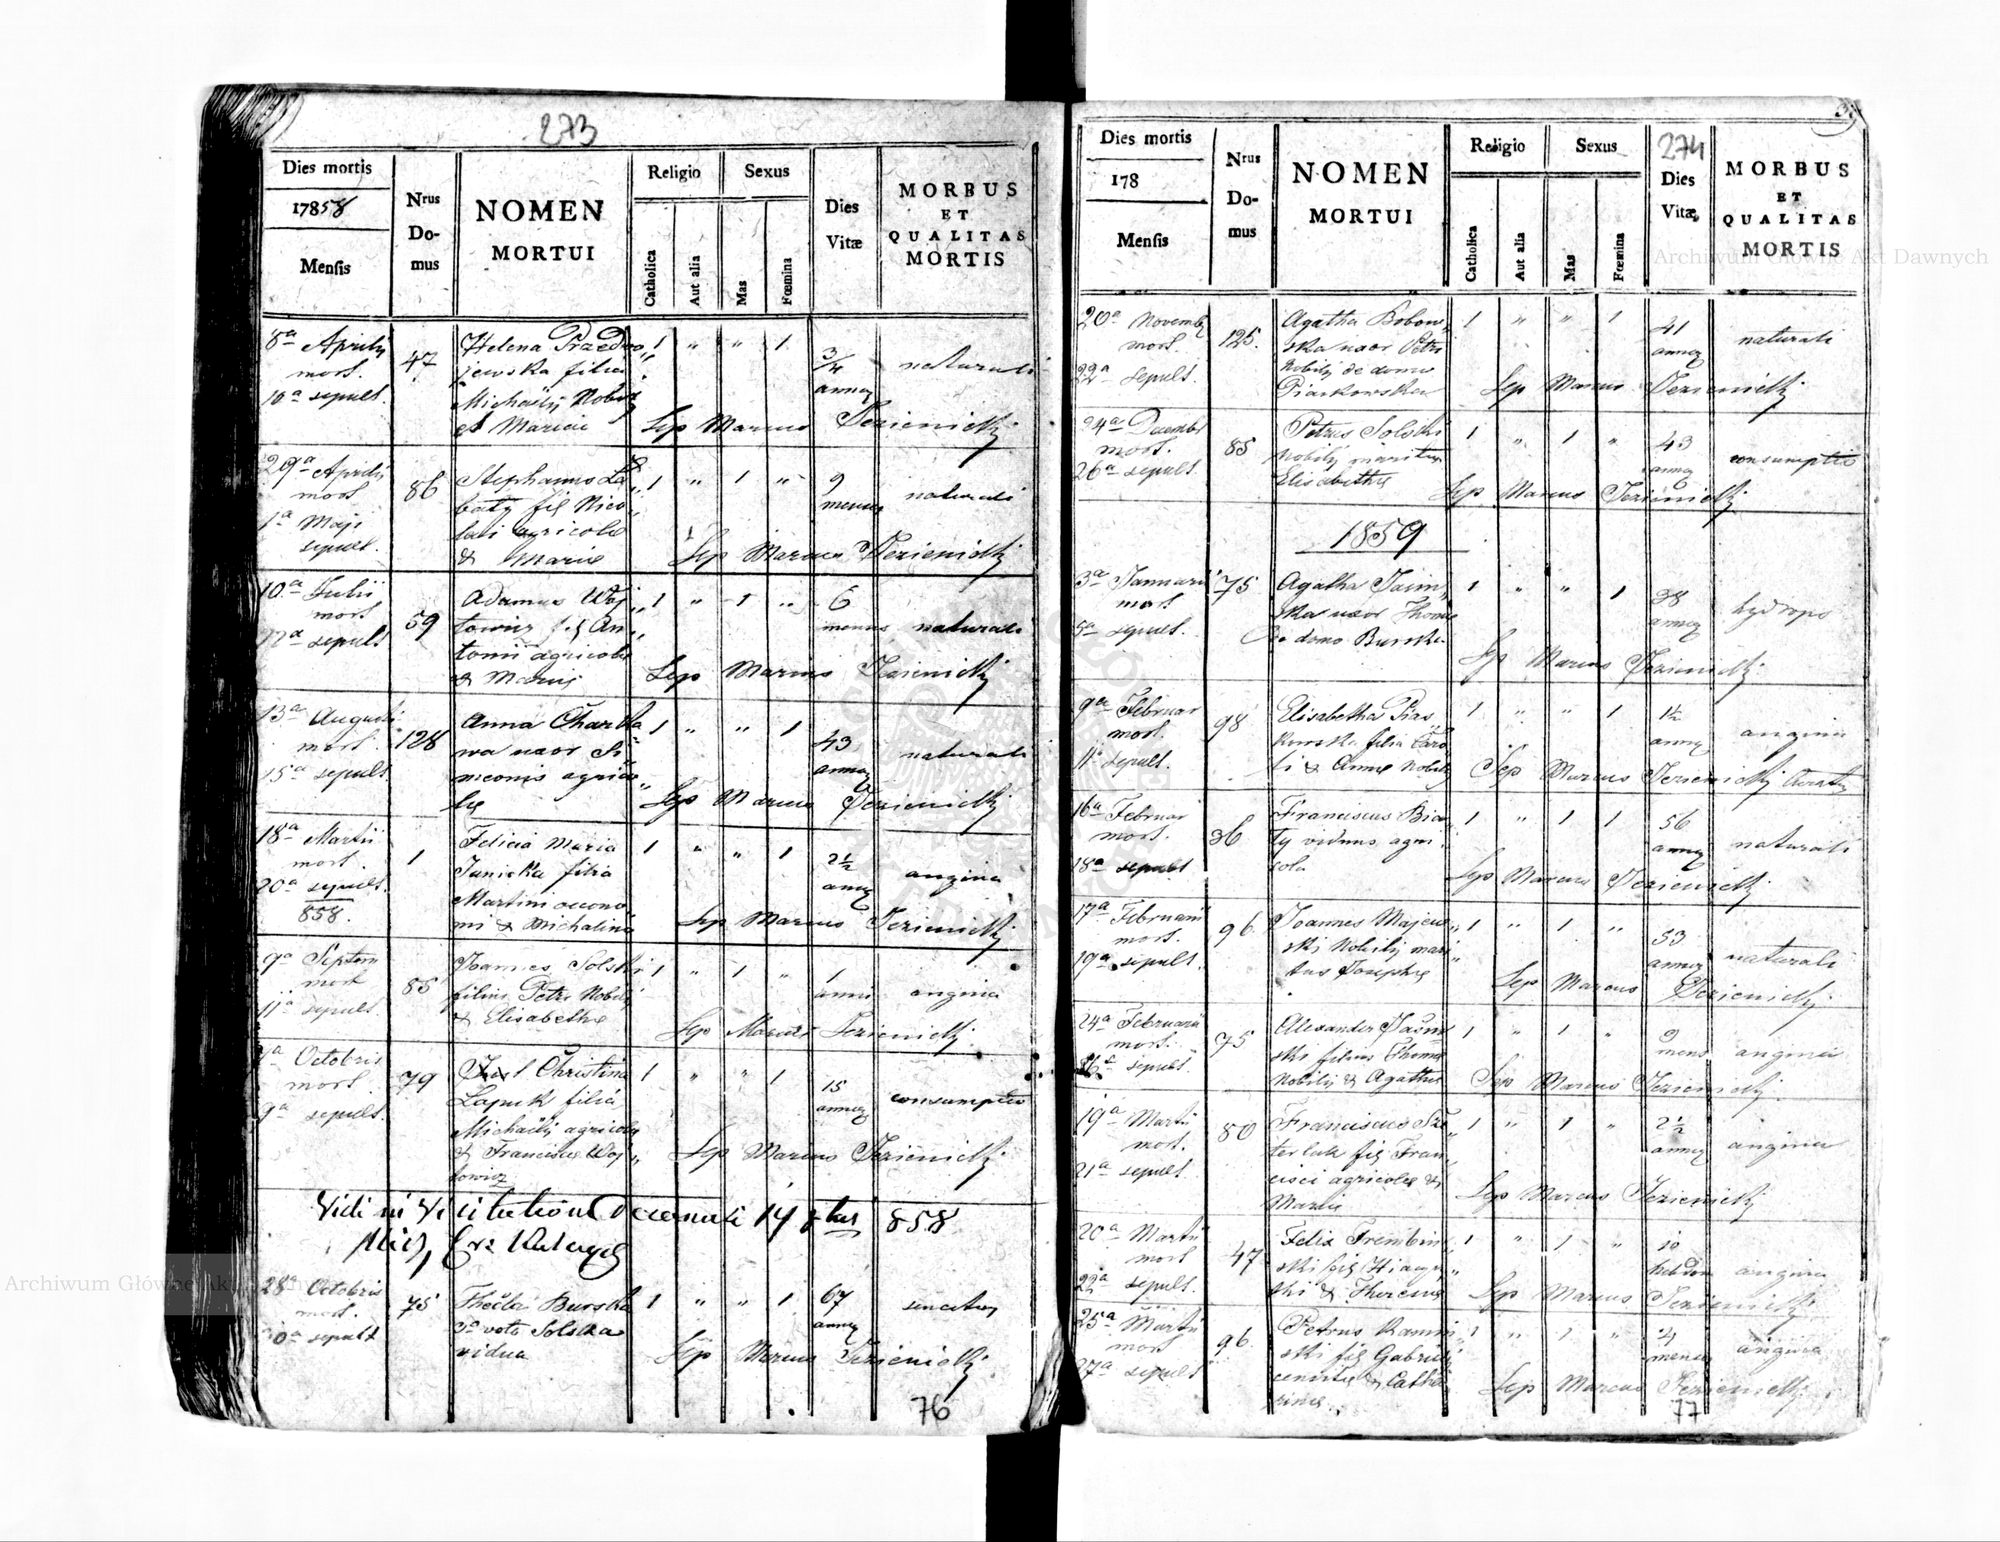 273
Dies mortis
17858
Mensis
Nrus
Do-
mus
NOMEN
MORTUI
Religio
Catholica
Aut alia
Sexus
Mas
Fœmina
Dies
Vitæ
MORBUS
ET
QUALITAS
MORTIS
8a Aprilij
mort.
10a sepult.
47
Helena Przedrzy
jewska filia
Michaëlij Nobilij
et Mariae
1 " " 1
3/4
annor
naturali
Sep Marcus Jezienicki
29a Aprilij
mort
1a Maji
sepult.
86
Stephanus La
baty fil Nico
lai agricolae
& Marie
1 " 1 "
9
menses
naturali
Sep Marcus Jezienicki
10a Julii
mort
12a sepult
59
Adamus Woj
towicz fil An
tonii agricolae
& Marie
1 " 1 "
6
menses
naturali
Sep Marcus Jezienicki
13a Augusti
mort.
15a sepult
128
Anna Charko
wa uxor Si
meonis agrico
lae
1 " " 1
43
annor
naturali
Sep Marcus Jezienicki
18a Martii
mort.
20a sepult.
858.
1
Felicia Maria
Janicka filia
Martini occono
mi & Michalina
1 " " 1
2½
annor
angina
Sep Marcus Jezienicki
9a Septem
mort
11a sepult.
85
Joannes Solski
filius Petri Nobilij
& Elisabethe
1 " 1 "
1
anni
angina
Sep Marcus Jezienicki
7a Octobris
mort.
9a sepult.
79
Christina
Lapuk filia
Michaëlij agricolae
& Franciscae Woj
towicz
1 " " 1
15
annor
consumptio
Sep Marcus Jezienicki
Vidi in Visitatione Decanali 14 8bris 858
28a Octobris
mort.
30a sepult
75
Thecla Burska
2o voto Solska
vidua
1 " " 1
67
annor
senectus
Sep Marcus Jezienicki
76
274
Dies mortis
178
Mensis
Nrus
Do-
mus
NOMEN
MORTUI
Religio
Catholica
Aut alia
Sexus
Mas
Fœmina
Dies
Vitæ
MORBUS
ET
QUALITAS
MORTIS
20a Novembr
mort.
22a sepult.
125.
Agatha Bobow
ska uxor Petri
Nobilij de domo
Piaskowska
1 " " 1
41
annor
naturali
Sep Marcus Jezienicki
24a Decembr
mort.
26a sepult.
85
Petrus Solski
Nobilij maritus
Elisabethe
1 " 1 "
43
annor
consumptio
Sep Marcus Jezienicki
1859
3a Januarii
mort.
5a sepult.
75
Agatha Jasin
ska uxor Thome
de domo Burska
1 " " 1
38
annor
hydrops
Sep Marcus Jezienicki
9a Februar
mort.
11a sepult.
98
Elisabetha Pias
kowska filia Caro
li & Anne Nobilij
1 " " 1
1½
annor
angina
Sep Marcus Jezienicki
16a Februar
mort.
18a sepult
36
Franciscus Bia
ty viduus agri
cola
1 " 1 1
56
annor
naturali
Sep Marcus Jezienicki
17a Februarii
mort.
19a sepult.
96
Joannes Majew
ski Nobilij mari
tus Josephe
1 " 1 "
53
annor
naturali
Sep Marcus Jezienicki
24a Februarii
mort.
26a sepult.
75
Alexander Jasin
ski filius Thome
Nobilij & Agathe
1 " 1 "
9
mens
angina
Sep Marcus Jezienicki
19a Martii
mort.
21a sepult.
80
Franciscus Szt
terlak fil Fran
cisci agricolae &
Marie
1 " 1 "
2½
annor
angina
Sep Marcus Jezienicki
20a Martii
mort
22a sepult.
47
Felix Trembin
ski fil Hiacyn
thi & Theresie
1 " 1 "
10
hebdom
angina
Sep Marcus Jezienicki
25a Martii
mort
27a sepult
96
Petrus Kamin
ski fil Gabrieli
& Cathe
rine.
1 " 1 "
4
menses
angina
Sep Marcus Jezienicki
77
Archiwum Główne Akt Dawnych
Archiwum Główne Akt Dawnych